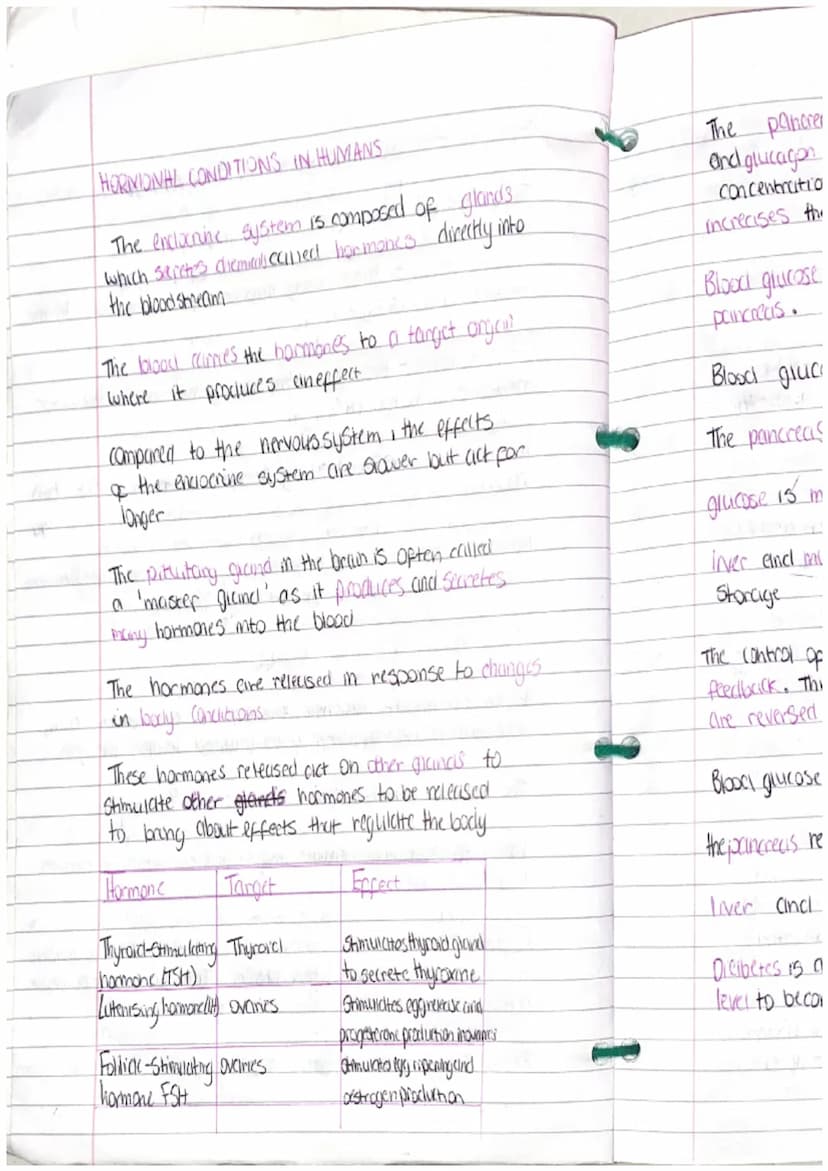 HORMONAL CONDITIONS IN HUMANS
The endocrine system is composed of glands
which secretes chemicals called hormones directly into
the bloodstream
The blood carries the hormones to a target organ
where it produces an effect
compared to the nervous system, the effects
of the endocrine system are slower but act for
longer
The pituitary gland in the brain is often called
a 'master gland' as it produces and secretes
many hormones into the blood
The hormones are released in response to changes
in body conditions
These hormones released act on other glands to
stimulate other glands hormones to be released
to bring about effects that regulate the body
Hormone Target Effect
Thyroid-Stimulating Thyroid Stimulates thyroid gland
hormone (TSH) to secrete thyroxine
Lutenising hormone (LH) ovaries Stimulates egg release and
progesterone production in ovaries
Follicle-Stimulating ovaries Stimulates egg ripening and
hormone FSH oestrogen production
The pancre
and glucagon
concentratio
increases the
Blood glucose
pancreas.
Blood gluc
The pancreas
glucose is m
liver and mu
Storage
The control of
feedback. Thi
are reversed
Blood glucose
the pancreas re
liver and
Diabetes is a
level to beco